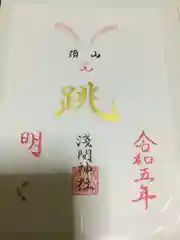 須山
跳
淺間神社
令和五年
明く